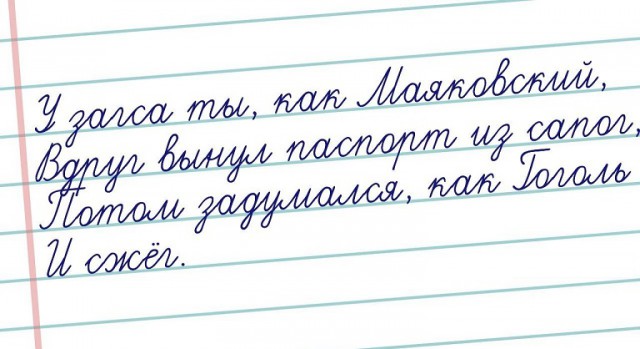 У загса ты, как Маяковский,
Вдруг вынул паспорт из сапог,
Потом задумался, как Гоголь
И сжёг.